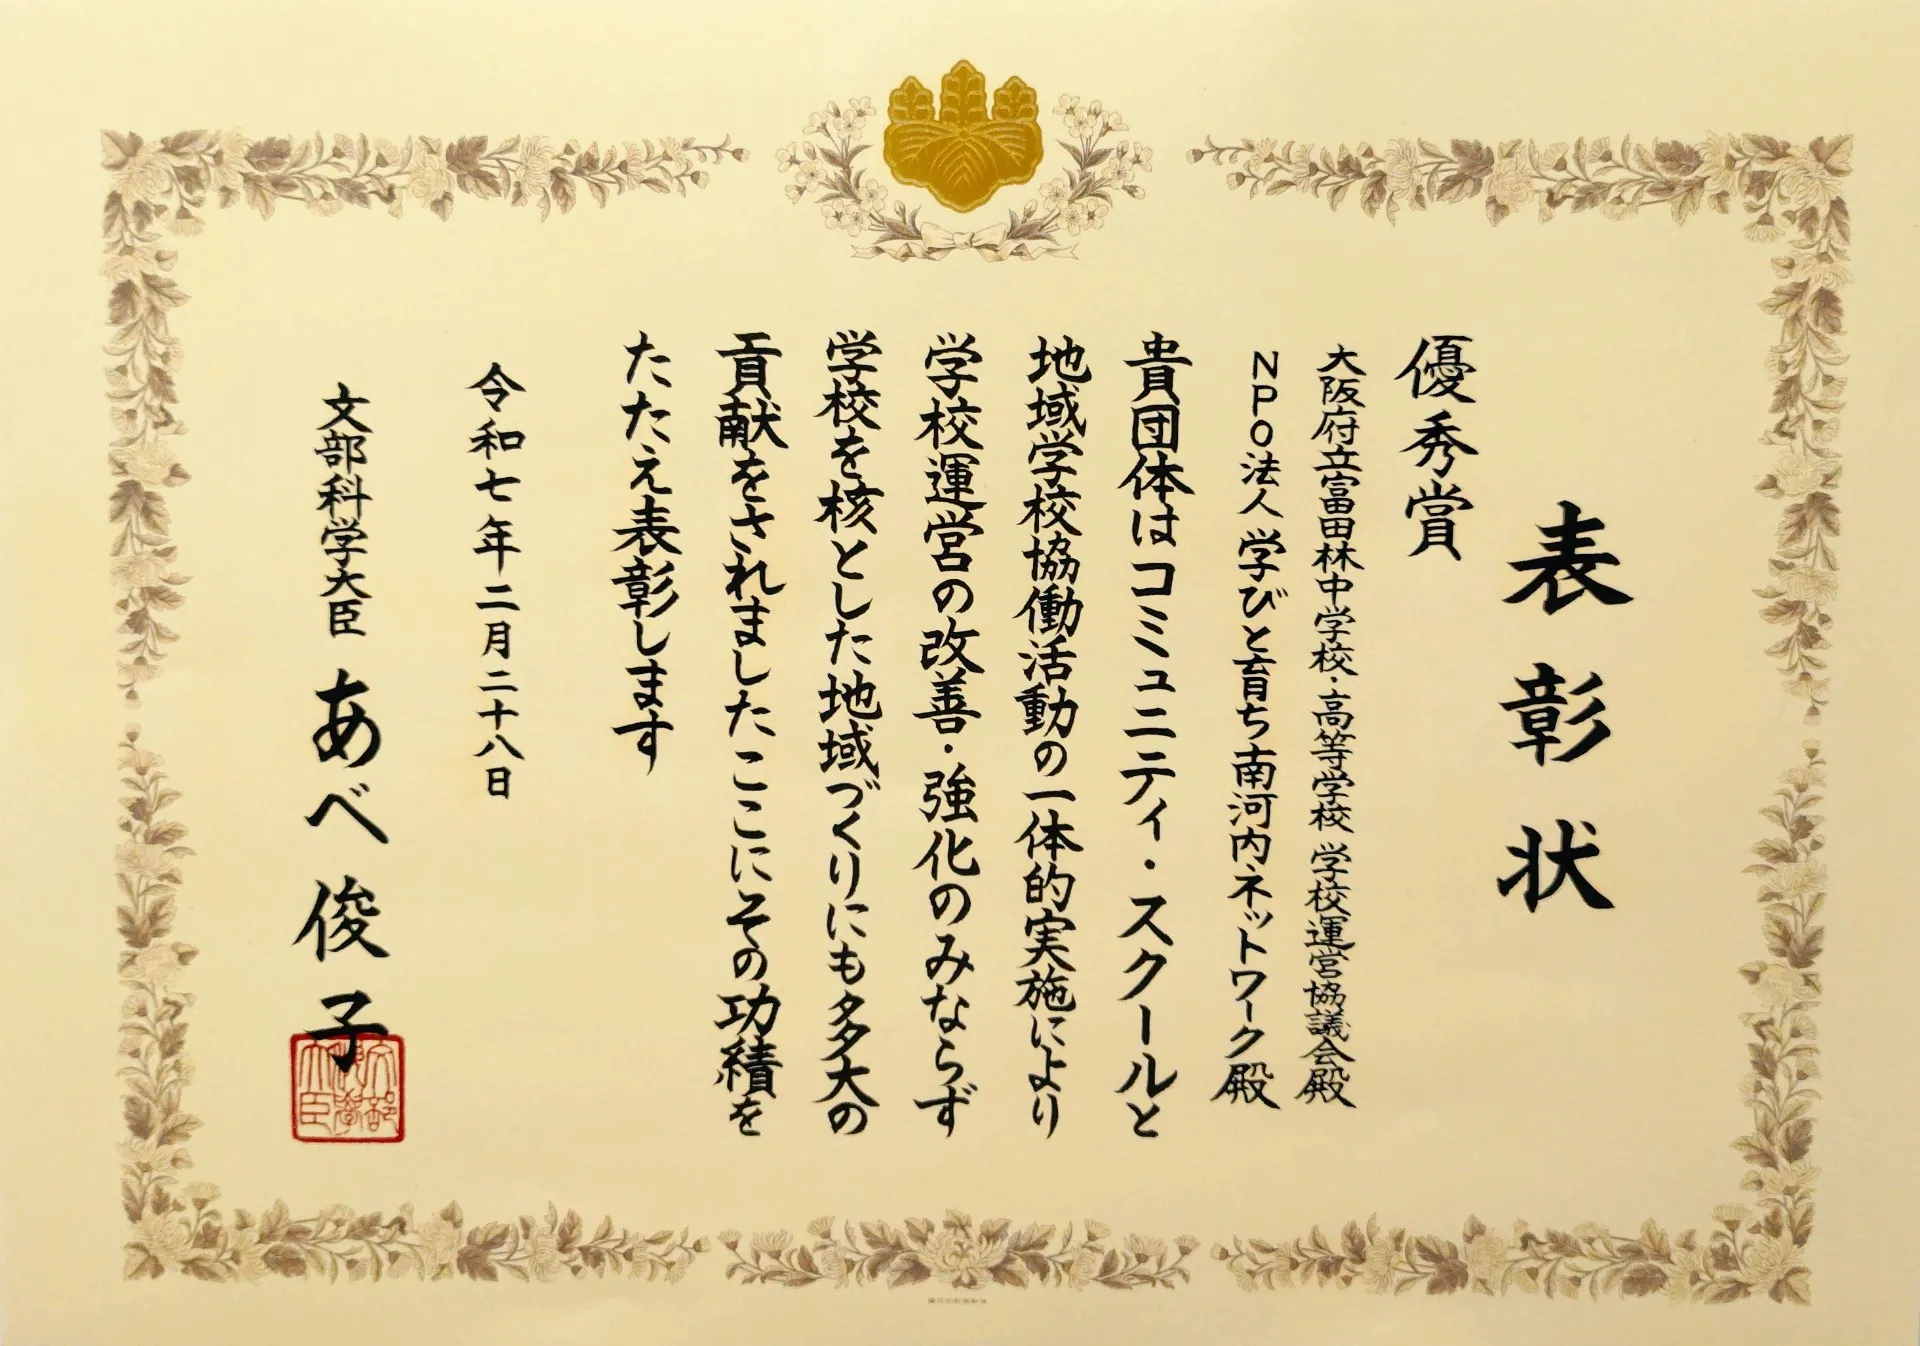 表彰状
優秀賞
大阪府立富田林中学校・高等学校 学校運営協議会殿
NPO法人 学びと育ち南河内ネットワーク殿
貴団体はコミュニティ・スクールと
地域学校協働活動の一体的実施により
学校運営の改善・強化のみならず
学校を核とした地域づくりにも多大の
貢献をされましたここにその功績を
たたえ表彰します
令和七年二月二十八日
文部科学大臣 あべ俊子
文部科学大臣